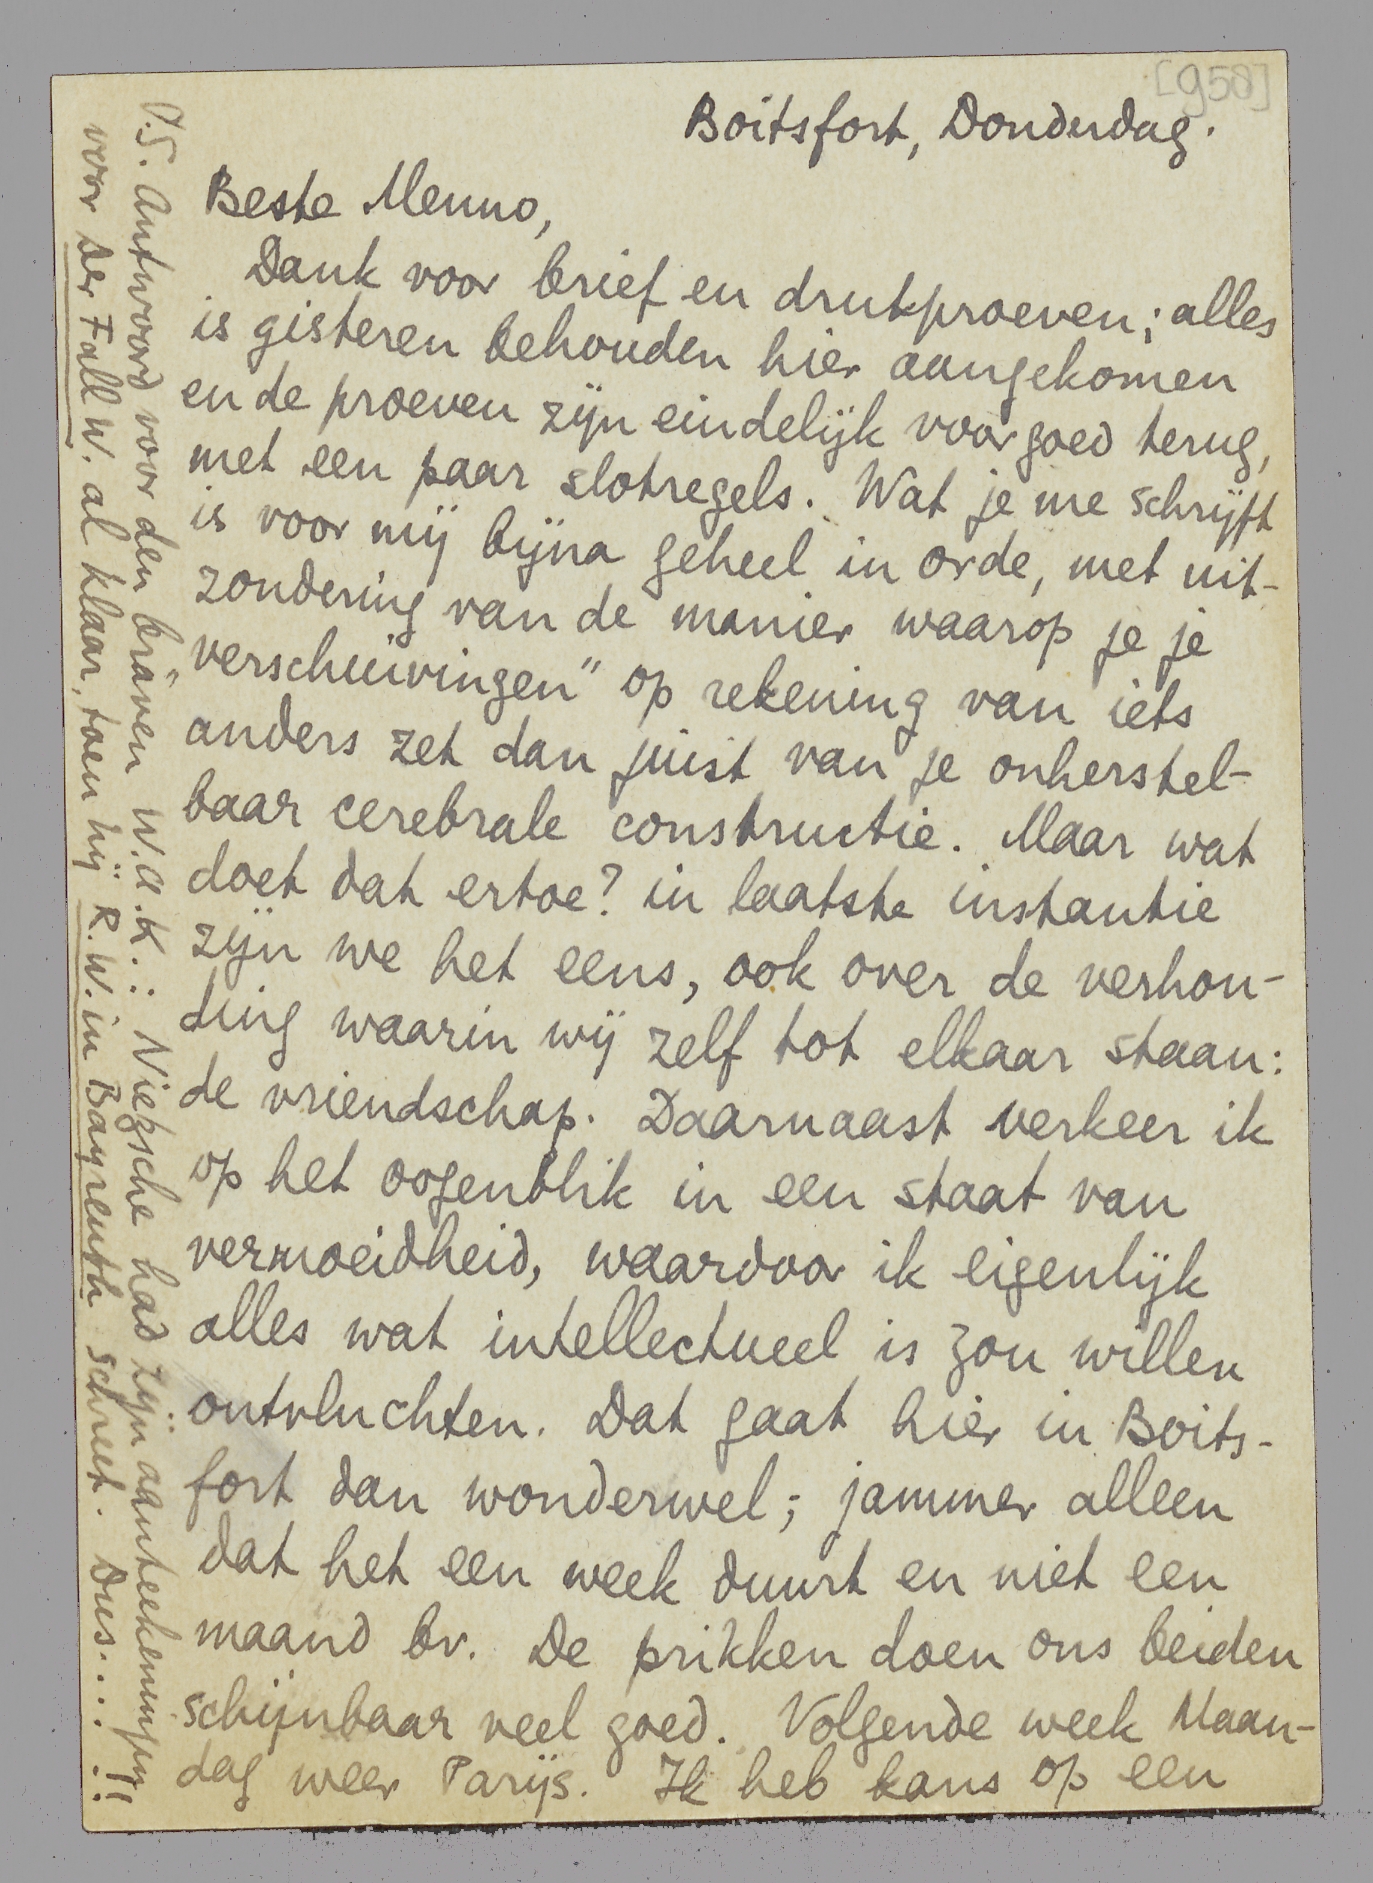 [958]
Boitsfort, Donderdag.
Beste Menno,
Dank voor brief en drukproeven; alles
is gisteren behouden hier aangekomen
en de proeven zijn eindelijk voor goed terug,
met een paar slotregels. Wat je me schrijft
is voor mij bijna geheel in orde, met uit-
zondering van de manier waarop je je
verschuivingen" op rekening van iets
anders zet dan juist van je onherstel-
baar cerebrale constructie. Maar wat
doet dat ertoe? in laatste instantie
zijn we het eens, ook over de verhou-
ding waarin wij zelf tot elkaar staan:
de vriendschap. Daarnaast verkeer ik
op het oogenblik in een staat van
vermoeidheid, waardoor ik eigenlijk
alles wat intellectueel is zou willen
ontvluchten. Dat gaat hier in Boits-
fort dan wonderwel; jammer alleen
dat het een week duurt en niet een
maand bv. De prikken doen ons beiden
schijnbaar veel goed. Volgende week Maan-
dag weer Parijs. Ik heb kans op een
P.S. Antwoord voor den braven W.A.K.: Niegsche had zijn aanteekeningen
voor Der Fall W. al klaar, toen hij R.W. in Bayreuth schreef. Dus....!!!